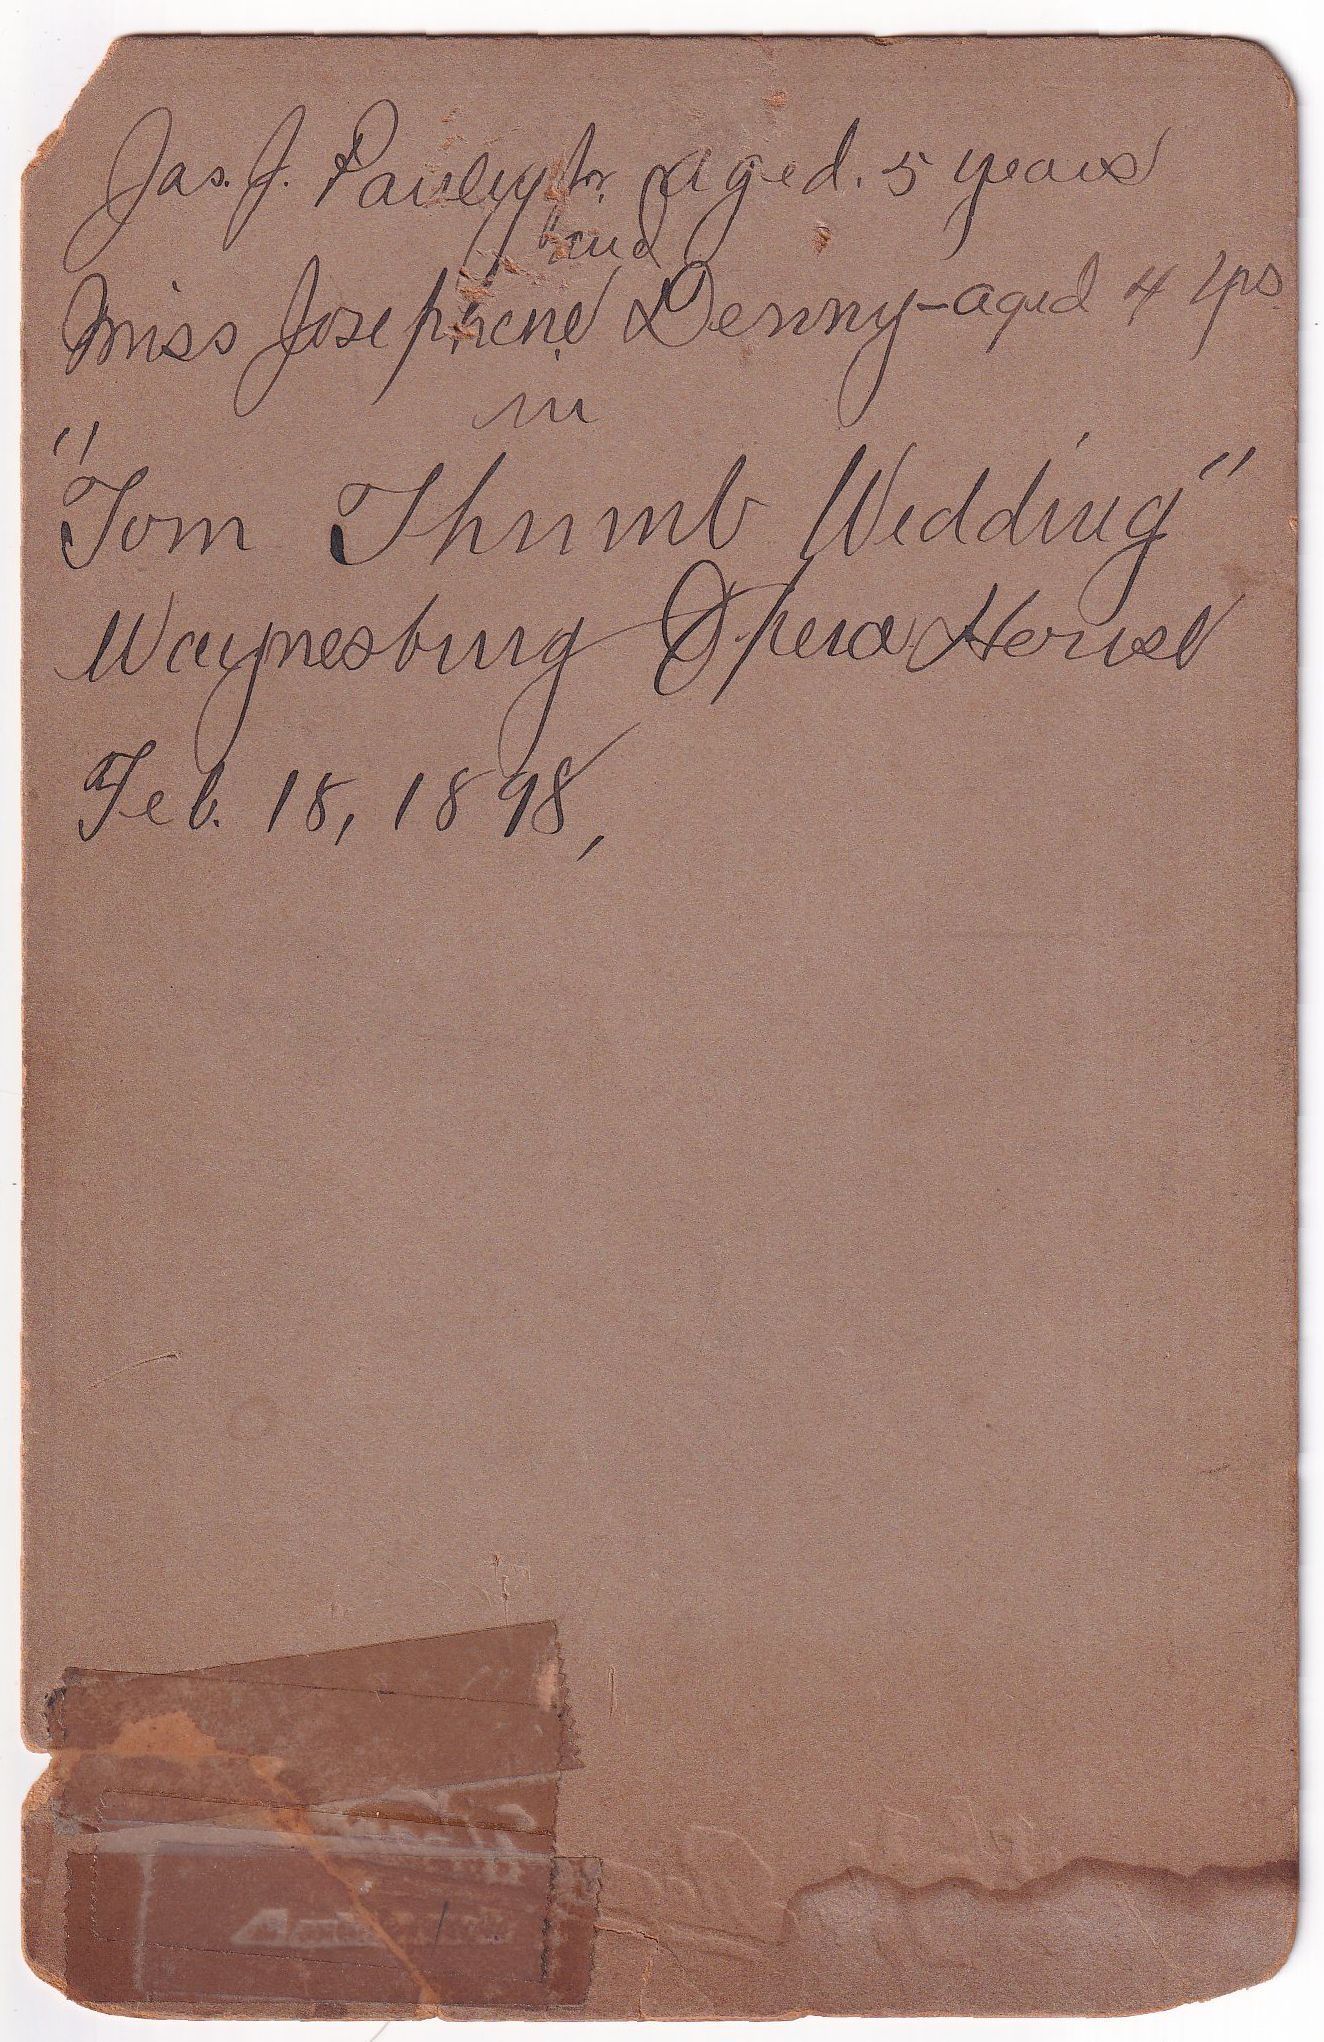 Jas. J. Pauley Jr. aged. 5 years
and
Miss Josephene Denny - aged 4 yrs
in
"Tom Thumb Wedding"
Waynesburg Opera House
Feb. 18, 1898,